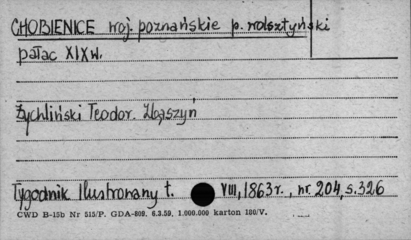 CHOBIENICE woj. poznańskie p. wolsztyński
pałac XIXw.
Żychliński Teodor. Zbąszyń
Tygodnik Ilustrowany t. VIII, 1863r., nr. 204, s. 326
CWD B-15b Nr 515/P. GDA-809. 6.3.59. 1.000.000 karton 180/V.